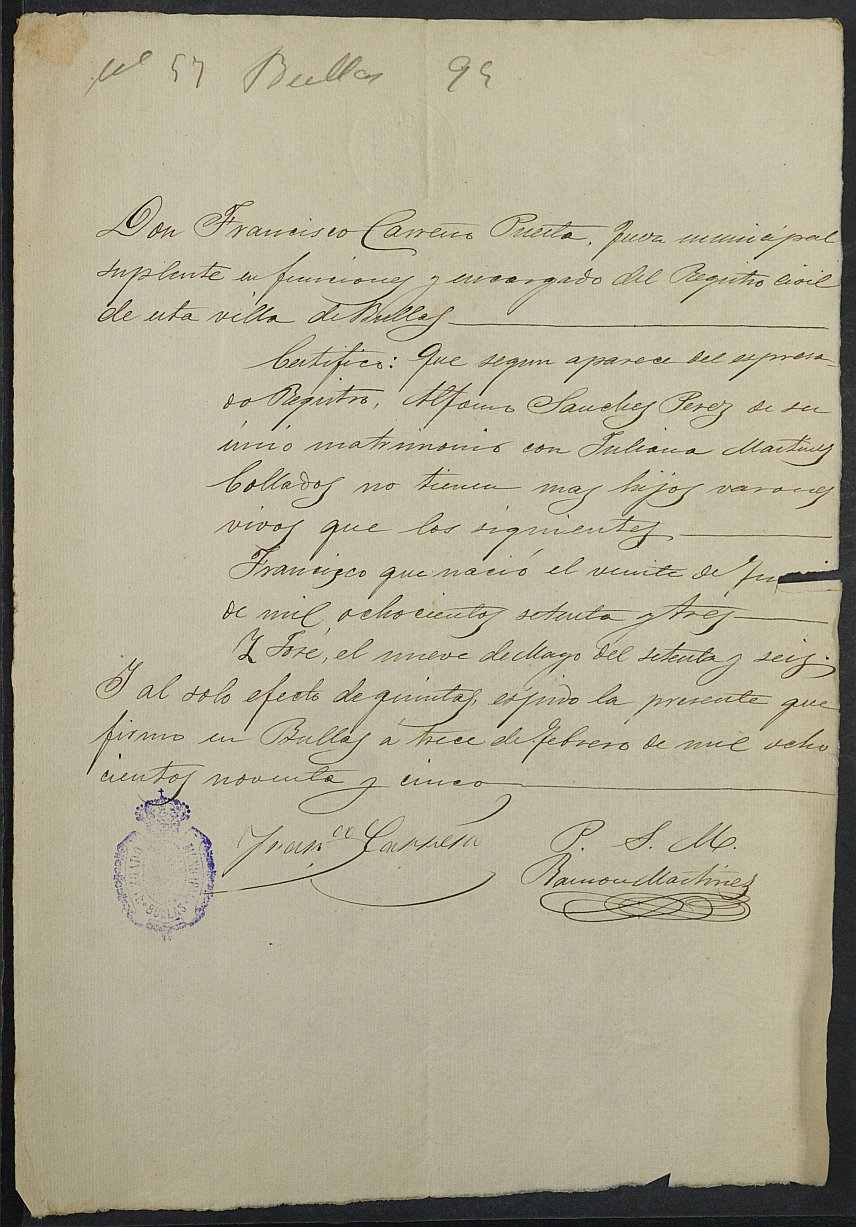 nº 57 Bullas 95
Don Francisco Carreño Puerta, Juez municipal
suplente en funciones y encargado del Registro civil
de esta villa de Bullas
Certifico: Que segun aparece del espresa-
do Registro, Alfonso Sanchez Perez de su
único matrimonio con Juliana Martinez
Collados no tienen mas hijos varones
vivos que los siguientes
Francisco que nació el veinte de
de mil ochocientos setenta y tres
Y José, el nueve de Mayo del setenta y seis.
Y al solo efecto de quintas, espido la presente que
firmo en Bullas á trece de Febrero de mil ocho
cientos noventa y cinco
Fran.co Carreño P. S. M.
Ramon Martinez
JUZGADO MUNICIPAL
BULLAS